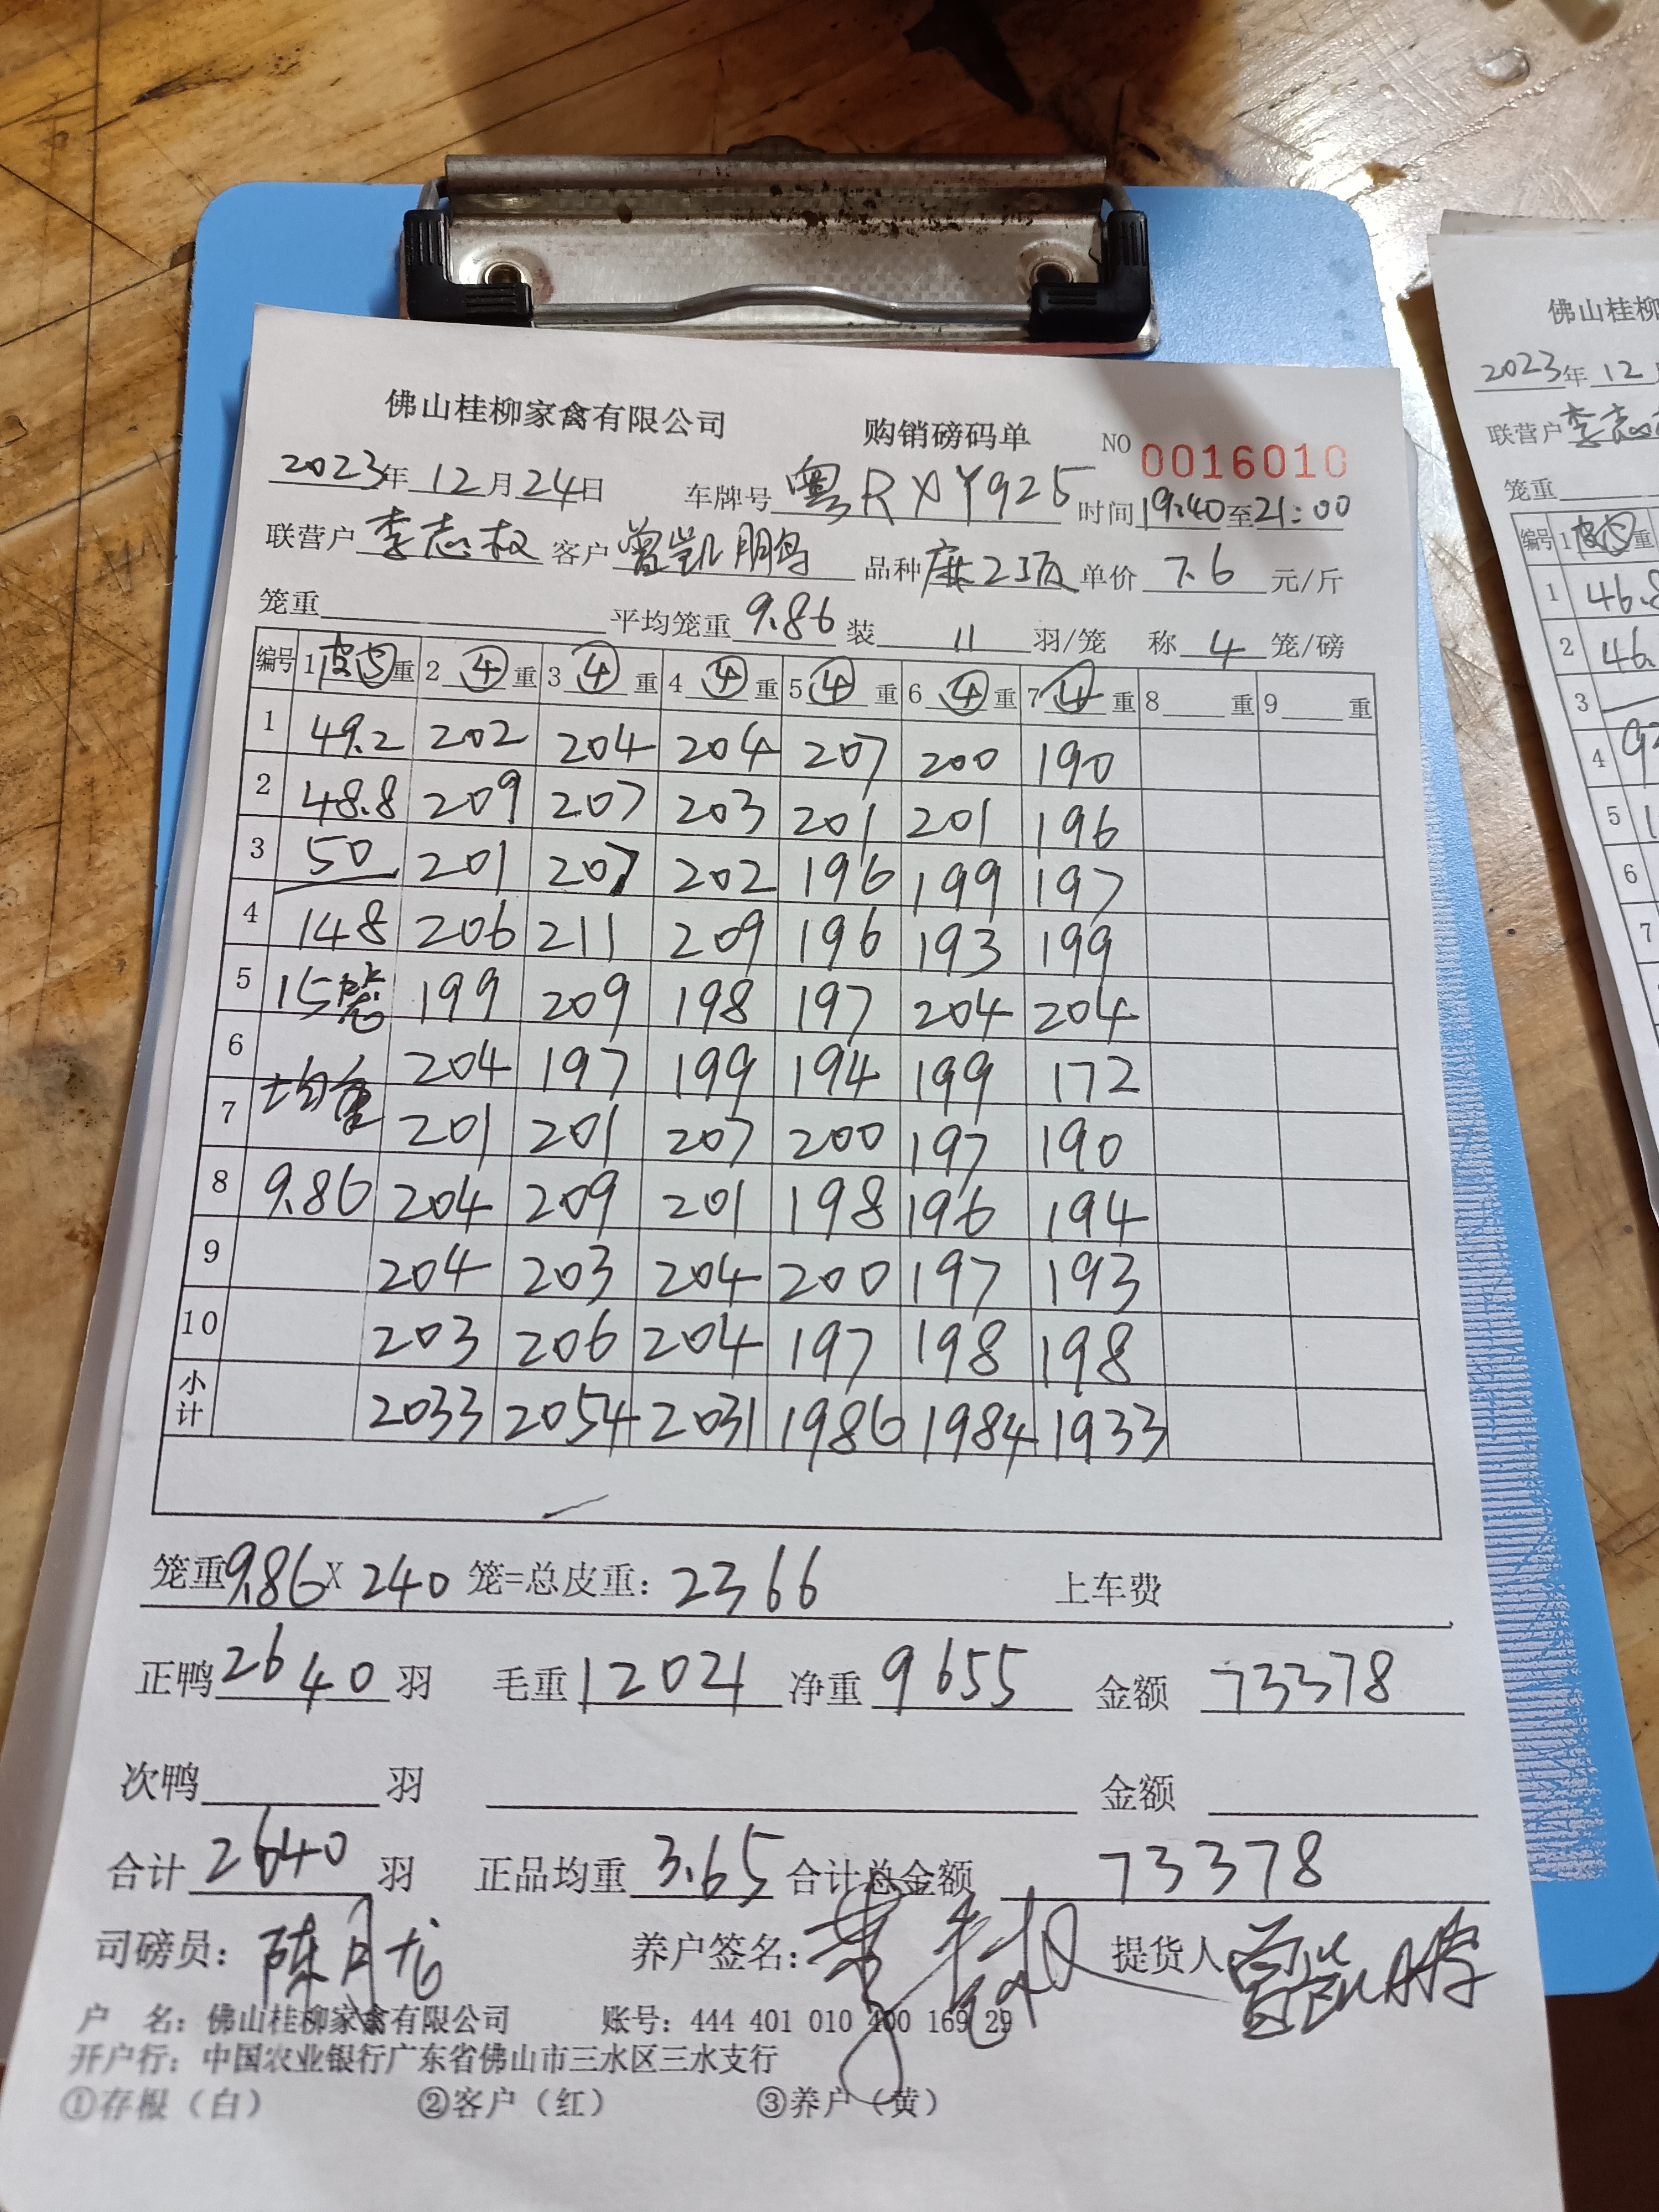 佛山桂柳家禽有限公司 购销磅码单 NO 0016010
2023年12月24日 车牌号 粤RXY925 时间19:40至21:00
联营户 李志权 客户 曾凯鹏 品种 麻2项 单价 7.6 元/斤
笼重 平均笼重 9.86 装 11 羽/笼 称 4 笼/磅
编号 1皮⑤重 2④重 3④重 4④重 5④重 6④重 7④重 8重 9重
1 49.2 202 204 204 207 200 190
2 48.8 209 207 203 201 201 196
3 50 201 207 202 196 199 197
4 148 206 211 209 196 193 199
5 15笼 199 209 198 197 204 204
6 均重 204 197 199 194 199 172
7 201 201 207 200 197 190
8 9.86 204 209 201 198 196 194
9 204 203 204 200 197 193
10 203 206 204 197 198 198
小计 2033 2054 2031 1986 1984 1933
笼重9.86X 240 笼=总皮重: 2366 上车费
正鸭 2640 羽 毛重 12021 净重 9655 金额 73378
次鸭 羽 金额
合计 2640 羽 正品均重 3.65 合计总金额 73378
司磅员: 陈月龙 养户签名: 李志权 提货人 曾凯鹏
户 名: 佛山桂柳家禽有限公司 账号: 444 401 010 400 169 29
开户行: 中国农业银行广东省佛山市三水区三水支行
①存根（白） ②客户（红） ③养户（黄）
佛山桂柳
2023年12
联营户李志
笼重
编号 1皮⑤重
1 46.8
2 46.
3
4 9
5 1
6
7